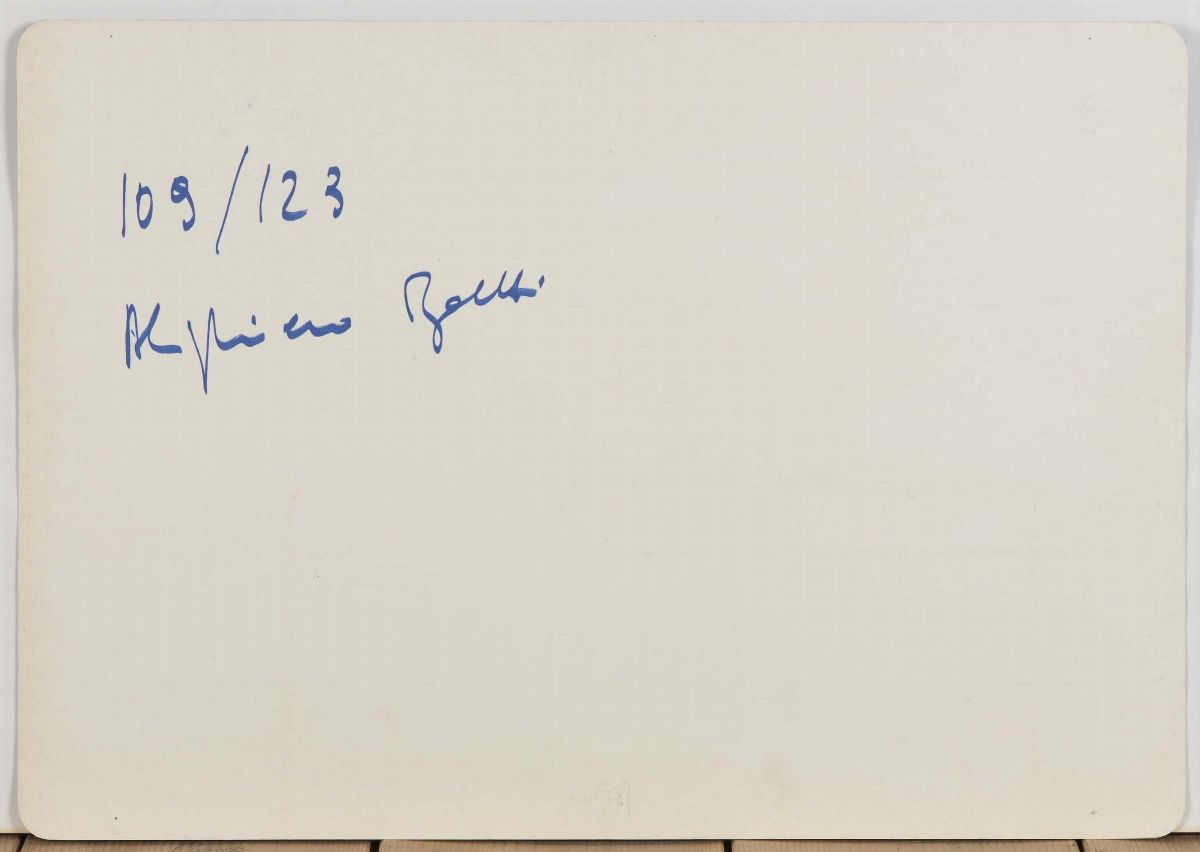 109/123
Alighiero Boetti